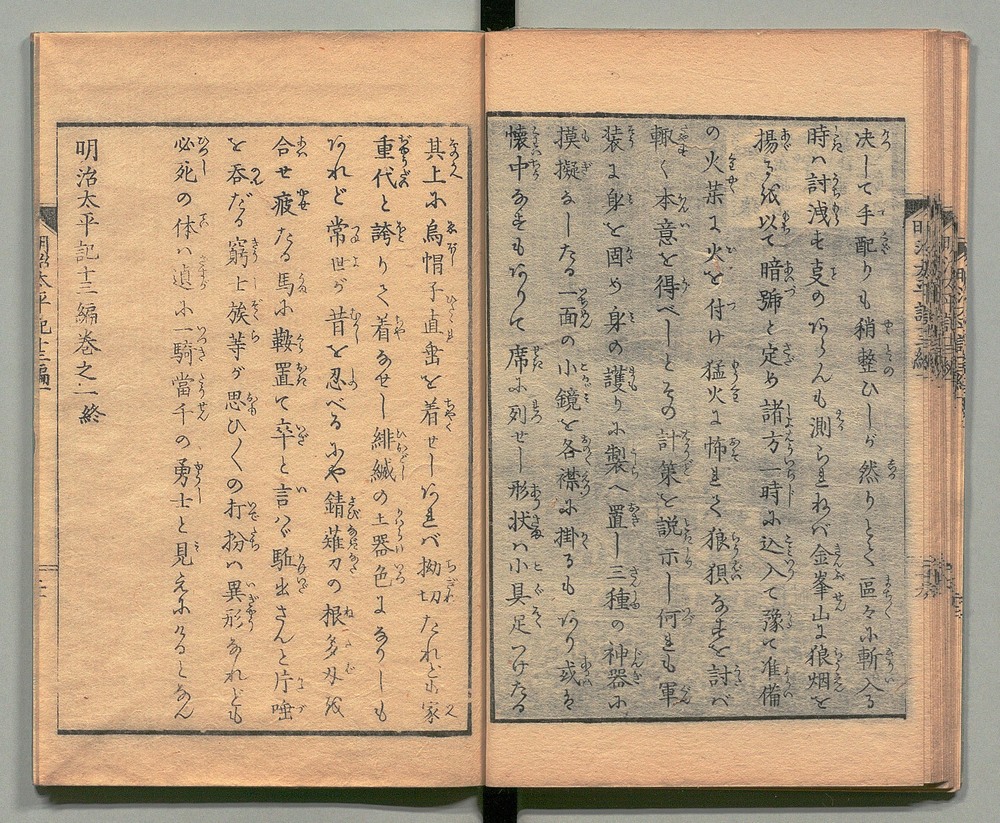 决して手配りも稍整ひしが然りとて區々小斬入る
時ハ討洩も の らんも測られねバ金峯山に狼烟を
揚るを以て暗號と定め諸方一時に込入て豫て准備
の火茱に火を付け猛火に怖れて狼狽なすを討バ
輙く本意を得べしとその計策を説示し何れも軍
装に身を固め身の護りに製へ置し三種の神器に
摸擬なしたる一面の小鏡を各襟に掛るもあり或ハ
懐中なすもありて席に列せし形状ハ小具足つけたる
其上に烏帽子直垂を着せしあれバ拗切たれど家
重代と誇りて着なせし緋縅の土器色になりしも
あれど常世が昔を忍べるにや錆薙刀の根 刄を
合せ疲たる馬に鞍置て卒と言ハゞ駈出さんと片唾
を呑だる窮士族等が思ひ〳〵の打扮ハ異形なれども
必死の体ハ真に一騎當千の勇士と見えにけるとなん
明治太平記十三編巻之一終
明治太平記十三編